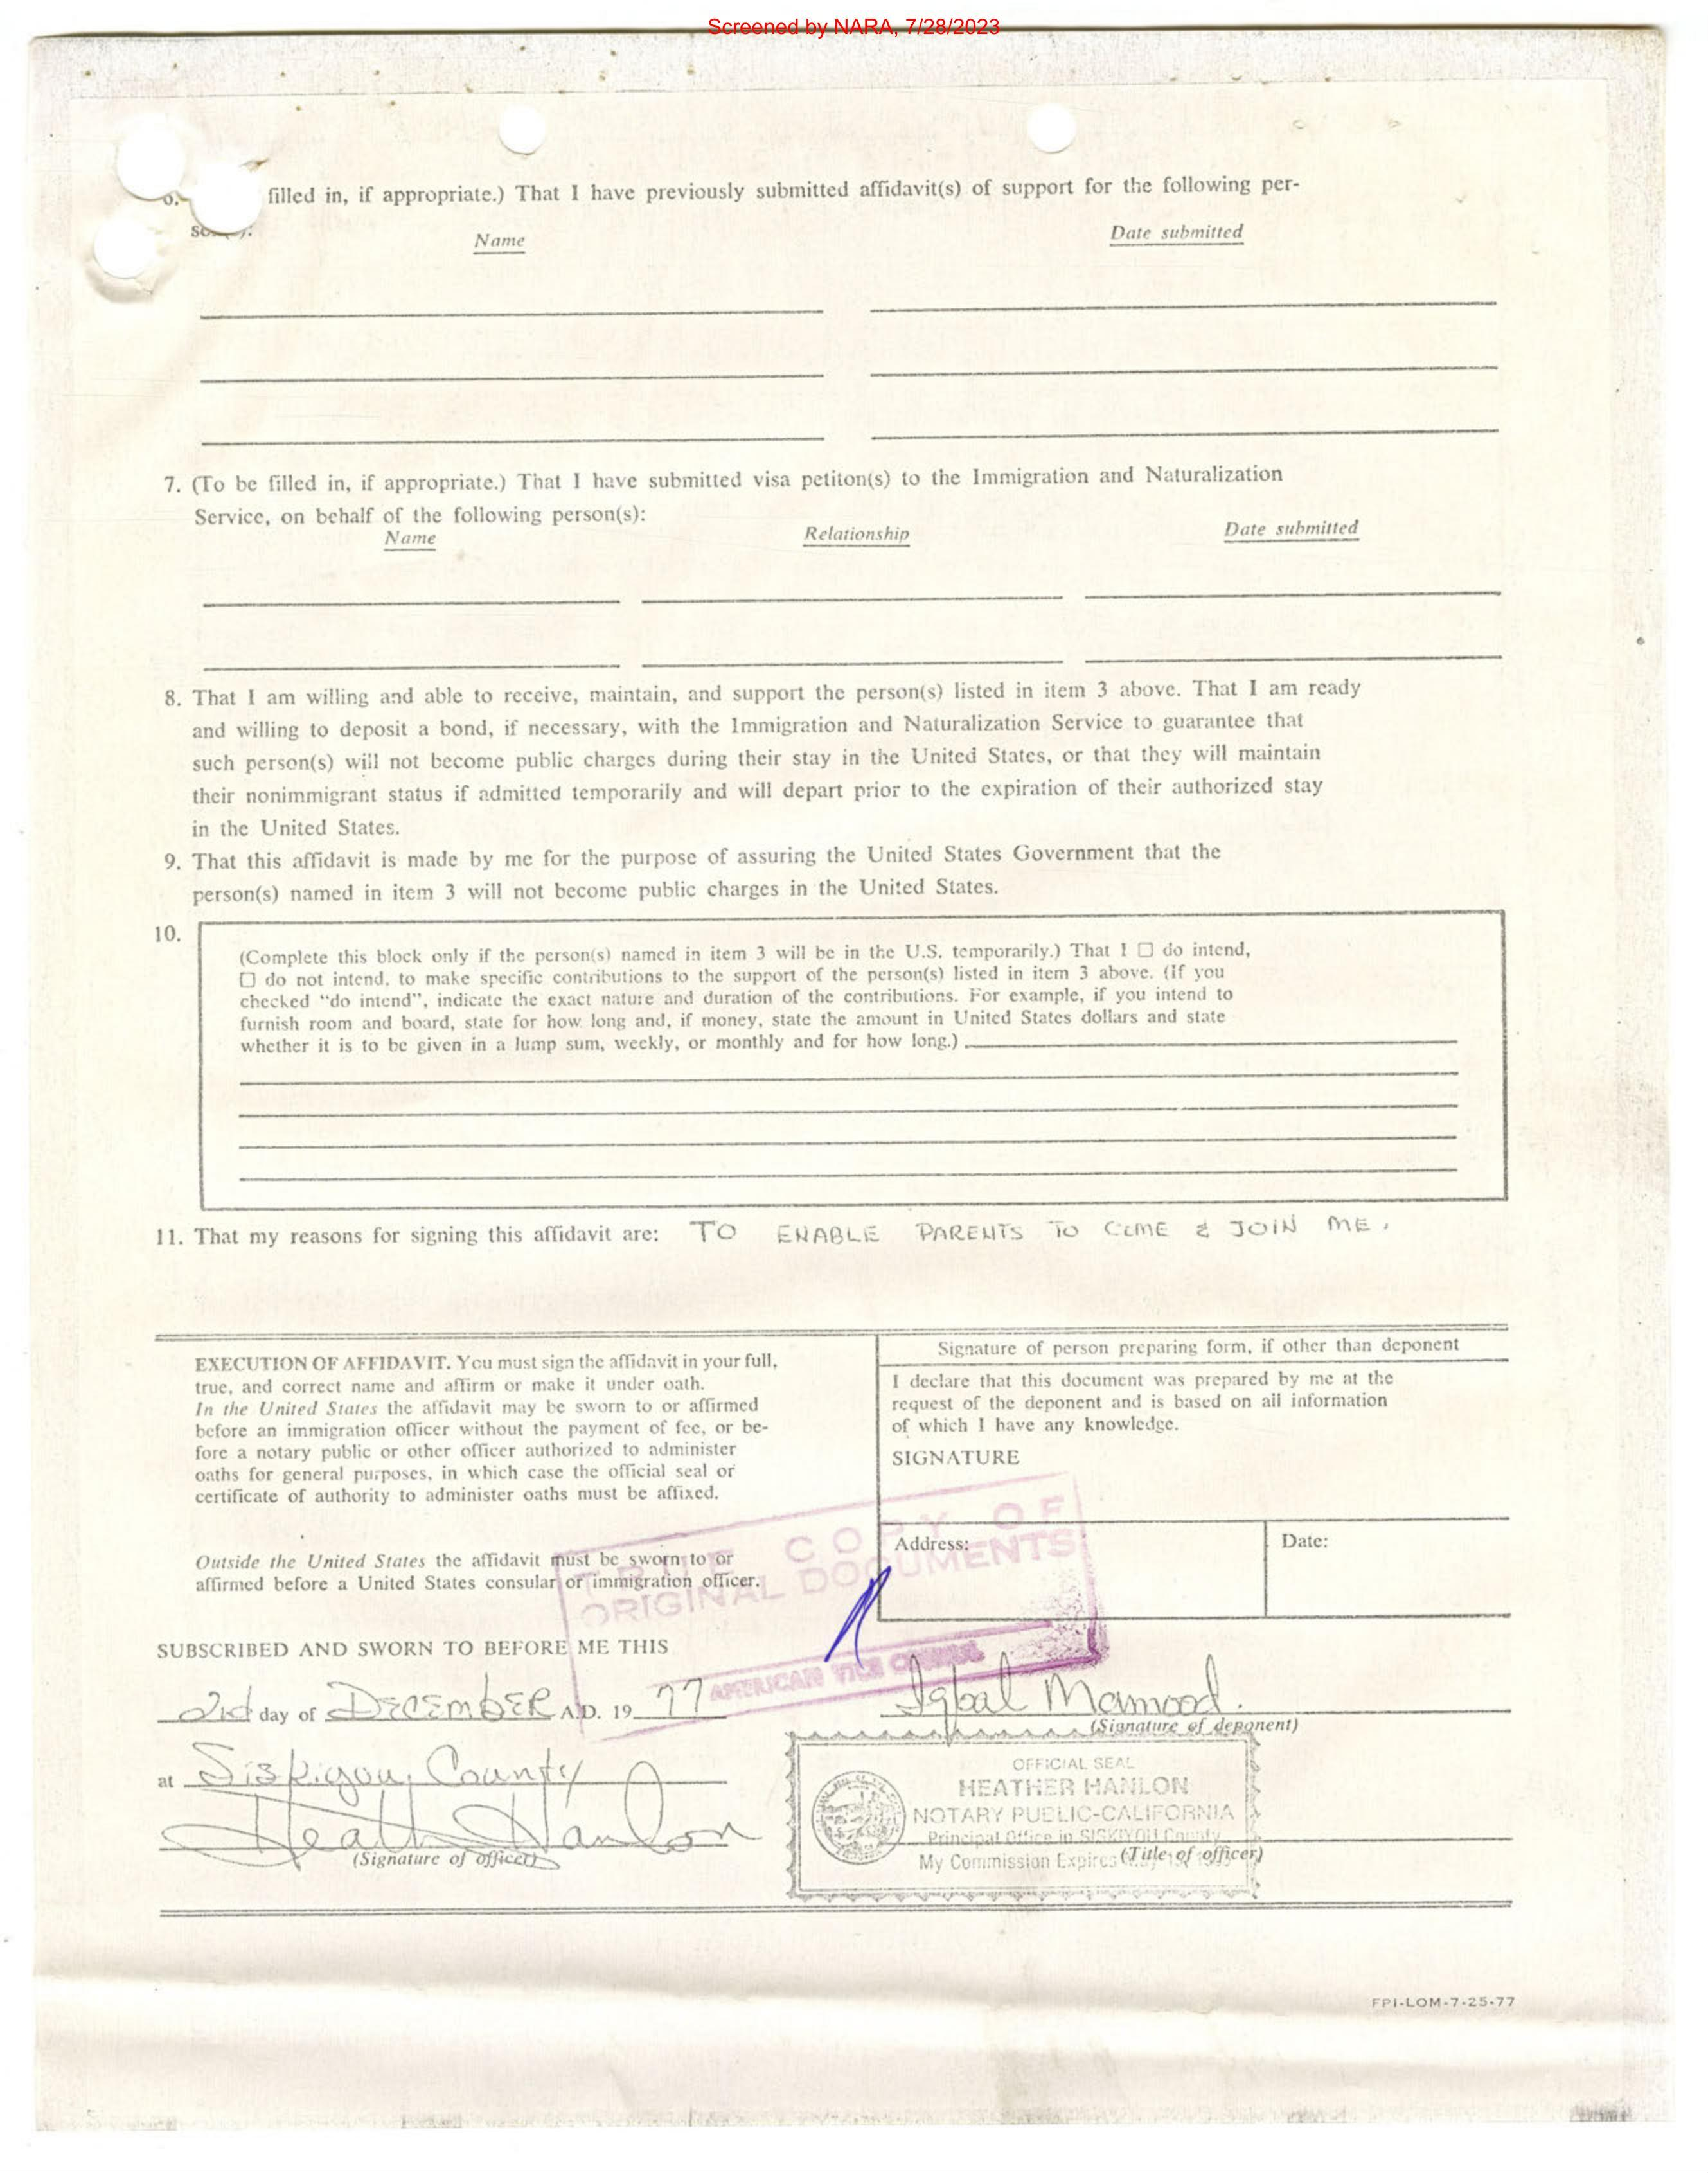 Screened by NARA, 7/28/2023
filled in, if appropriate.) That I have previously submitted affidavit(s) of support for the following per-
Name
Date submitted
7. (To be filled in, if appropriate.) That I have submitted visa petiton(s) to the Immigration and Naturalization
Service, on behalf of the following person(s):
Name
Relationship
Date submitted
8. That I am willing and able to receive, maintain, and support the person(s) listed in item 3 above. That I am ready
and willing to deposit a bond, if necessary, with the Immigration and Naturalization Service to guarantee that
such person(s) will not become public charges during their stay in the United States, or that they will maintain
their nonimmigrant status if admitted temporarily and will depart prior to the expiration of their authorized stay
in the United States.
9. That this affidavit is made by me for the purpose of assuring the United States Government that the
person(s) named in item 3 will not become public charges in the United States.
10.
(Complete this block only if the person(s) named in item 3 will be in the U.S. temporarily.) That I ☐ do intend,
☐ do not intend, to make specific contributions to the support of the person(s) listed in item 3 above. (If you
checked “do intend”, indicate the exact nature and duration of the contributions. For example, if you intend to
furnish room and board, state for how long and, if money, state the amount in United States dollars and state
whether it is to be given in a lump sum, weekly, or monthly and for how long.)
11. That my reasons for signing this affidavit are: TO ENABLE PARENTS TO COME & JOIN ME.
EXECUTION OF AFFIDAVIT. You must sign the affidavit in your full,
true, and correct name and affirm or make it under oath.
In the United States the affidavit may be sworn to or affirmed
before an immigration officer without the payment of fee, or be-
fore a notary public or other officer authorized to administer
oaths for general purposes, in which case the official seal or
certificate of authority to administer oaths must be affixed.
Outside the United States the affidavit must be sworn to or
affirmed before a United States consular or immigration officer.
Signature of person preparing form, if other than deponent
I declare that this document was prepared by me at the
request of the deponent and is based on all information
of which I have any knowledge.
SIGNATURE
Address:
Date:
TRUE COPY OF
ORIGINAL DOCUMENTS
AMERICAN VICE CONSUL
SUBSCRIBED AND SWORN TO BEFORE ME THIS
2nd day of DECEMBER A.D. 19 77
Iqbal Mamood.
(Signature of deponent)
at Siskiyou County
Heather Hanlon
(Signature of officer)
OFFICIAL SEAL
HEATHER HANLON
NOTARY PUBLIC-CALIFORNIA
Principal Office in SISKIYOU County
My Commission Expires
(Title of officer)
FPI-LOM-7-25-77